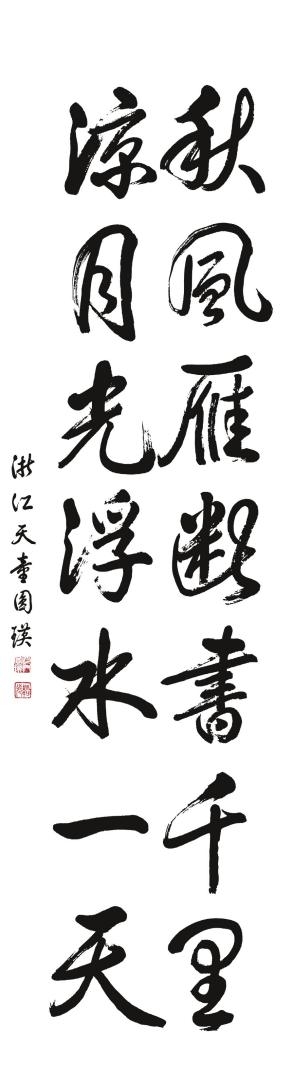 秋風雁斷書千里
涼月光浮水一天
浙江天童圓瑛